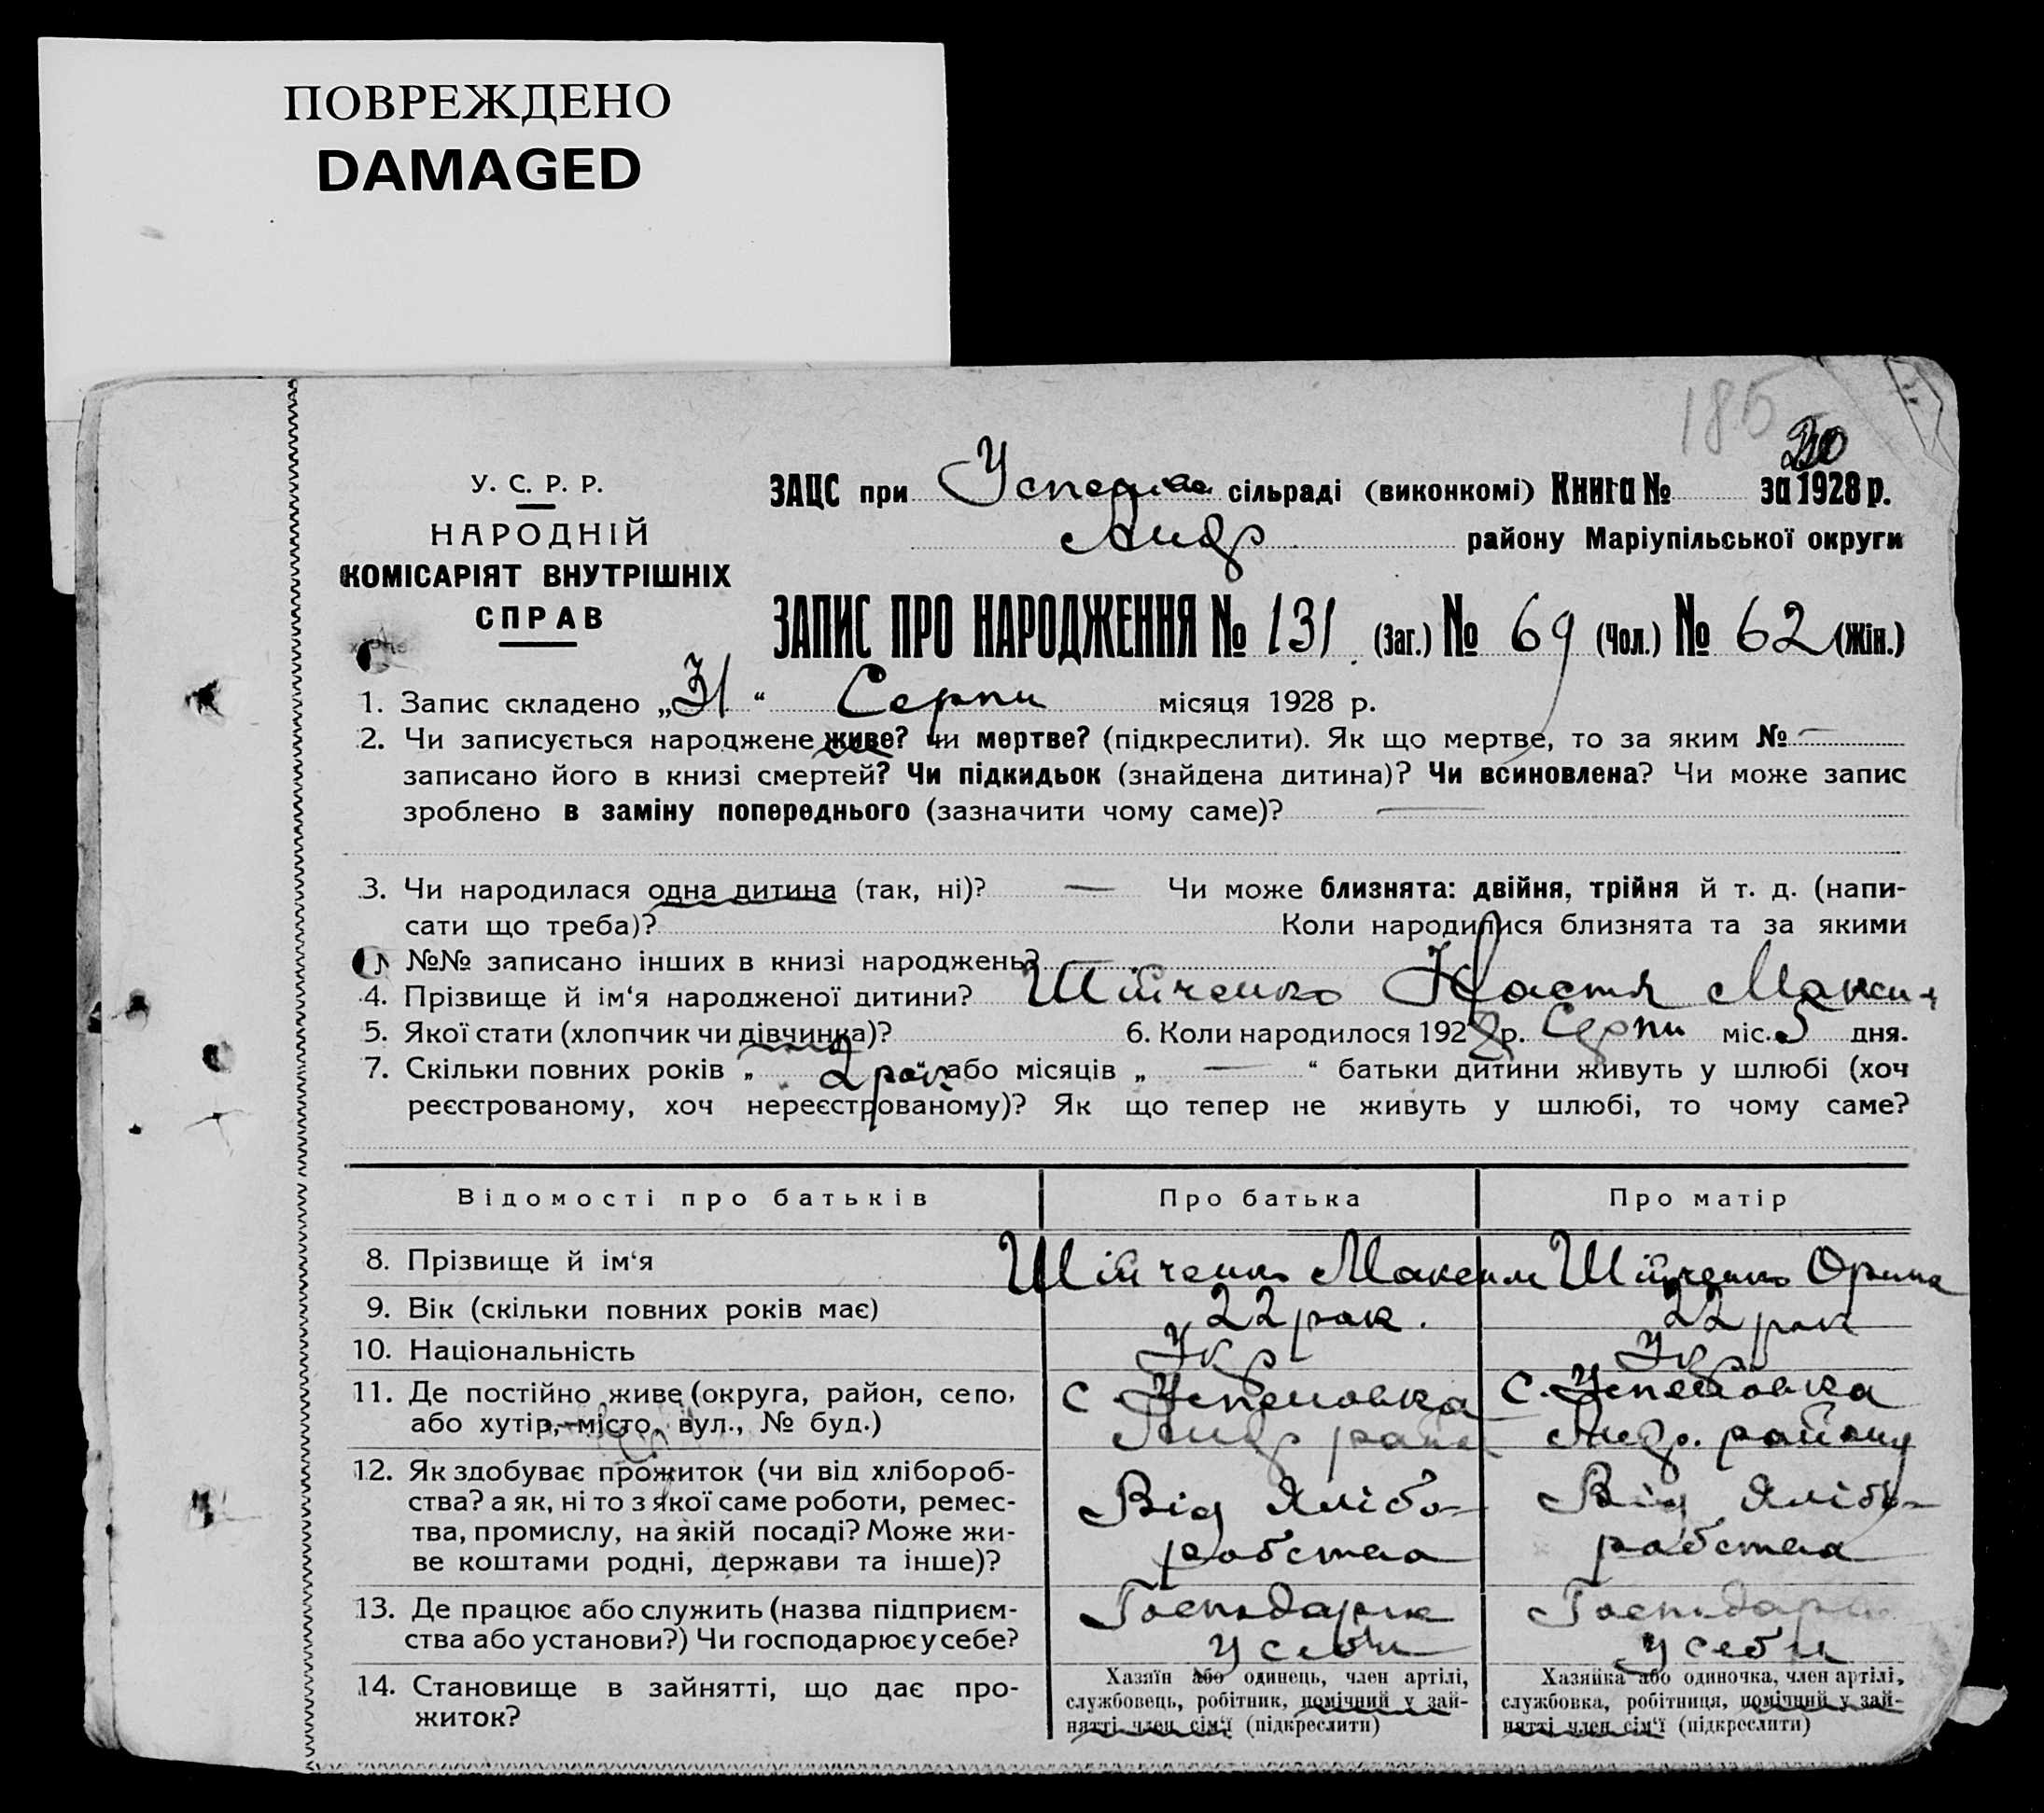 ПОВРЕЖДЕНО
DAMAGED
185
У. С. Р. Р.
НАРОДНІЙ
КОМІСАРІЯТ ВНУТРІШНІХ
СПРАВ
ЗАЦС при сільраді (виконкомі) Книга № за 1928 р.
Андр району Маріупільської округи
ЗАПИС ПРО НАРОДЖЕННЯ № 131 (Заг.) № 69 (Чол.) № 62 (Жін.)
1. Запис складено „31“ Серпн місяця 1928 р.
2. Чи записується народжене живе? чи мертве? (підкреслити). Як що мертве, то за яким № —
записано його в книзі смертей? Чи підкидьок (знайдена дитина)? Чи всиновлена? Чи може запис
зроблено в заміну попереднього (зазначити чому саме)? —
3. Чи народилася одна дитина (так, ні)? — Чи може близнята: двійня, трійня й т. д. (напи-
сати що треба)? Коли народилися близнята та за якими
№№ записано інших в книзі народжень?
4. Прізвище й ім‘я народженої дитини? Шійченко Настя Макси
5. Якої стати (хлопчик чи дівчинка)? 6. Коли народилося 1928 р. Серпн міс. 5 дня.
7. Скільки повних років „ 2 рок “ або місяців „ — “ батьки дитини живуть у шлюбі (хоч
реєстрованому, хоч нереєстрованому)? Як що тепер не живуть у шлюбі, то чому саме?
Відомості про батьків Про батька Про матір
8. Прізвище й ім‘я Шійченко Максим Шійченко Орина
9. Вік (скільки повних років має) 22 рок. 22 рок
10. Національність Укр Укр
11. Де постійно живе (округа, район, село, с. Успеновка с. Успеновка
або хутір, місто, вул., № буд.) Андр район Андр. району
12. Як здобуває прожиток (чи від хлібороб-
ства? а як, ні то з якої саме роботи, ремес- Від Хлібо- Від Хлібо-
тва, промислу, на якій посаді? Може жи- робства робства
ве коштами родні, держави та інше)?
13. Де працює або служить (назва підприєм- Господарює Господарю
ства або установи?) Чи господарює у себе? у себи у себи
14. Становище в зайнятті, що дає про-
житок?
Хазяїн або одинець, член артілі,
службовець, робітник, помічний у зай-
нятті член сім‘ї (підкреслити)
Хазяйка або одиночка, член артілі,
службовка, робітниця, помічний у зай-
нятті член сім‘ї (підкреслити)